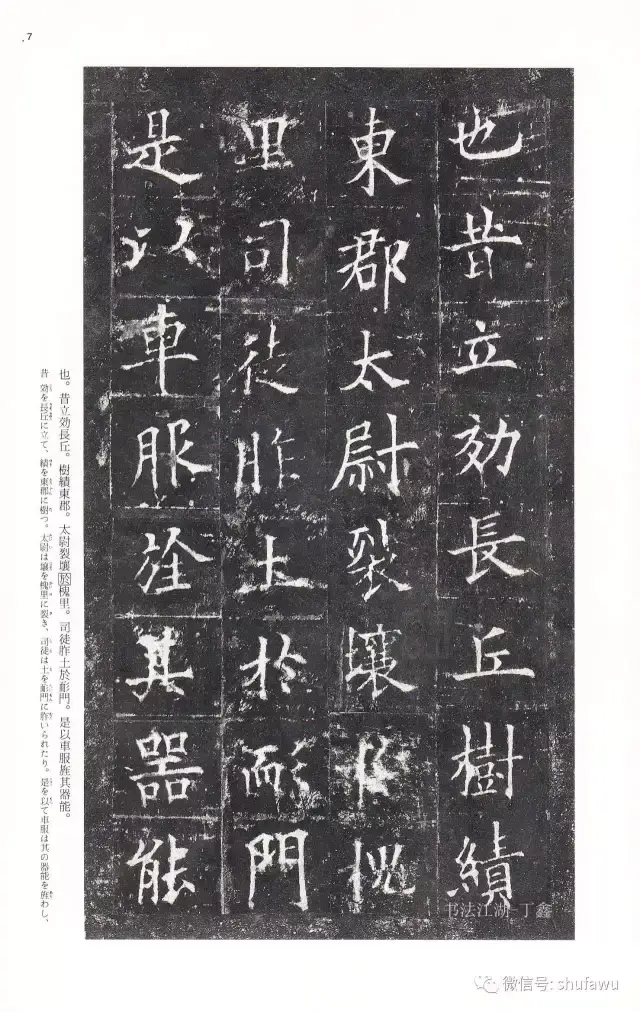 7
也昔立効長丘樹績
東郡太尉裂壤於槐
里司徒胙土於彨門
是以車服旌其器能
也。昔立効長丘。樹績東郡。太尉裂壤於槐里。司徒胙土於彨門。是以車服旌其器能。
昔 効を長丘に立て、績を東郡に樹つ。太尉は壤を槐里に裂き、司徒は土を彨門に胙いられたり。是を以て車服は其の器能を旌わし、
书法江湖-丁鑫
微信号: shufawu